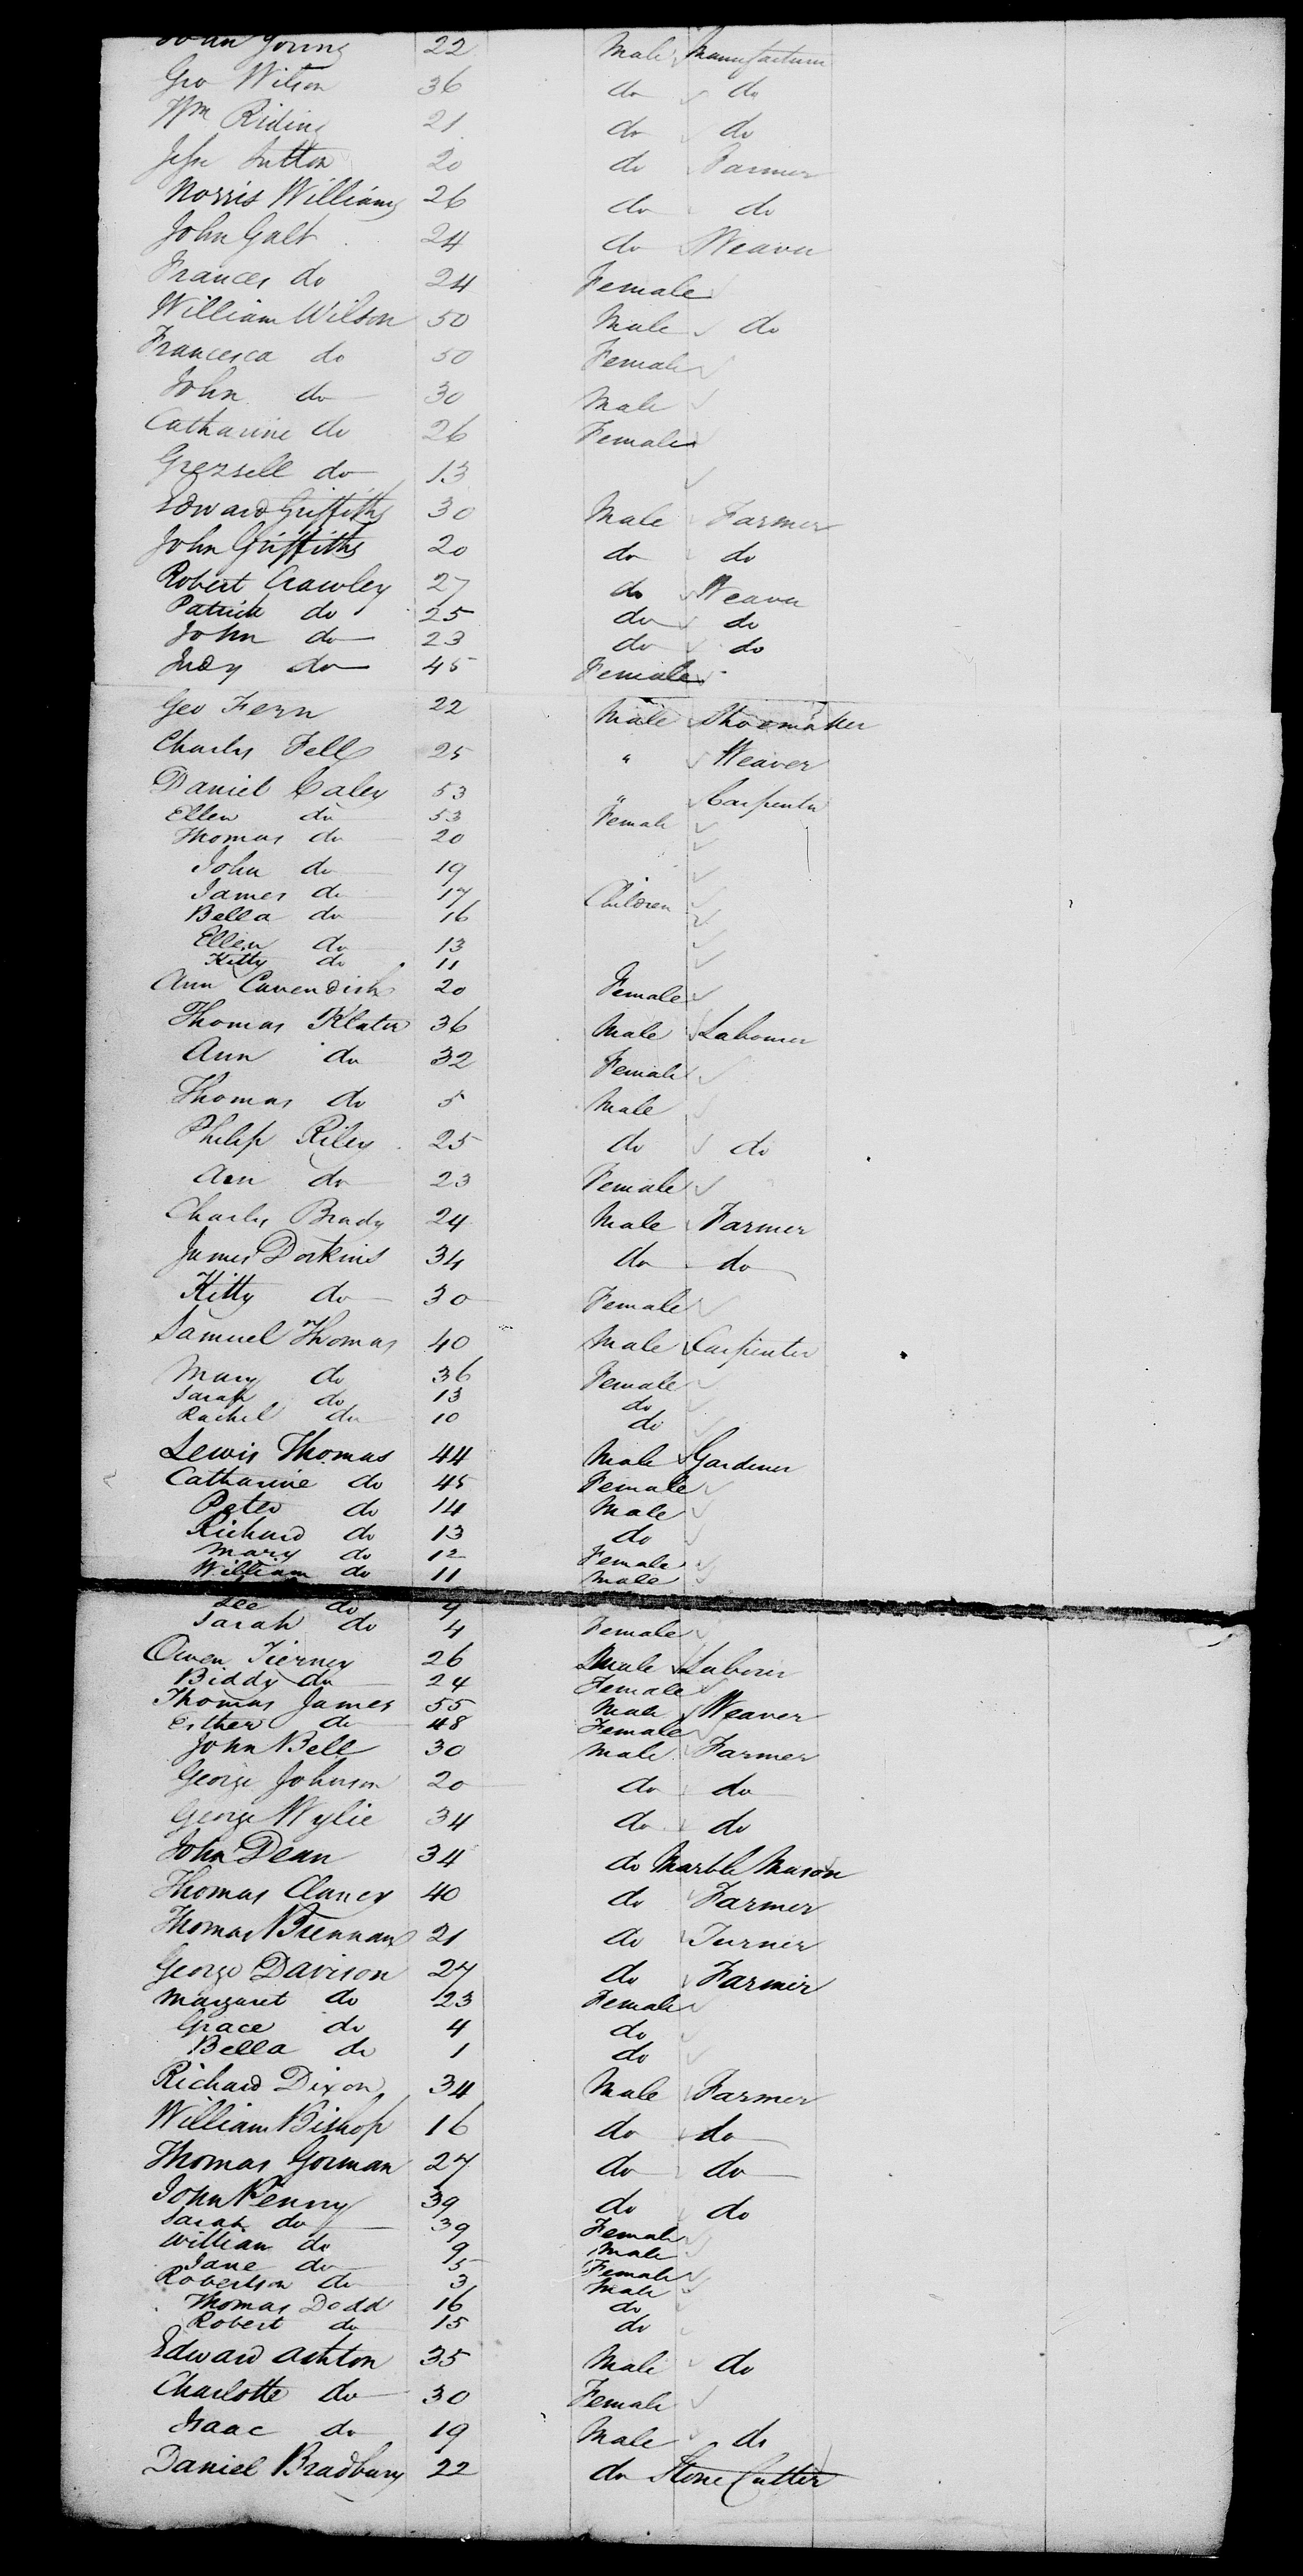 John Young 22 Male Manufacturer
Geo Wilson 36 do do
Wm Riding 21 do do
Jesse Sutton 20 do Farmer
Norris Williams 26 do do
John Galt 24 do Weaver
Frances do 24 Female
William Wilson 50 Male do
Francesca do 50 Female
John do 30 Male
Catharine do 26 Female
Grezsell do 13
Edward Griffiths 30 Male Farmer
John Griffiths 20 do do
Robert Crawley 27 do Weaver
Patrick do 25 do do
John do 23 do do
Judy do 45 Female
Geo Fern 22 Male Shoemaker
Charles Fell 25 " Weaver
Daniel Caley 53 " Carpenter
Ellen do 53 Female
Thomas do 20
John do 19
James do 17 Children
Bella do 16
Ellen do 13
Kitty do 11
Ann Cavendish 20 Female
Thomas Klater 36 Male Labourer
Ann do 32 Female
Thomas do 5 Male
Philip Riley 25 do do
Ann do 23 Female
Charles Brady 24 Male Farmer
James Dorkins 34 do do
Kitty do 30 Female
Samuel Thomas 40 Male Carpenter
Mary do 36 Female
Sarah do 13 do
Rachel do 10 do
Lewis Thomas 44 Male Gardener
Catharine do 45 Female
Peter do 14 Male
Richard do 13 do
Mary do 12 Female
William do 11 Male
Lee do 9
Sarah do 4 Female
Owen Tierney 26 Male Laborer
Biddy do 24 Female
Thomas James 55 Male Weaver
Esther do 48 Female
John Bell 30 Male Farmer
George Johnson 20 do do
George Wylie 34 do do
John Dean 34 do Marble Mason
Thomas Clancy 40 do Farmer
Thomas Brennan 21 do Turner
George Davison 27 do Farmer
Margaret do 23 Female
Grace do 4 do
Bella do 1 do
Richard Dixon 34 Male Farmer
William Bishop 16 do do
Thomas Gorman 27 do do
John Kenny 39 do do
Sarah do 39 Female
William do 9 Male
Jane do 5 Female
Robertson do 3 Male
Thomas Dodd 16 do
Robert do 15 do
Edward Ashton 35 Male do
Charlotte do 30 Female
Isaac do 19 Male do
Daniel Bradbury 22 do Stone Cutter